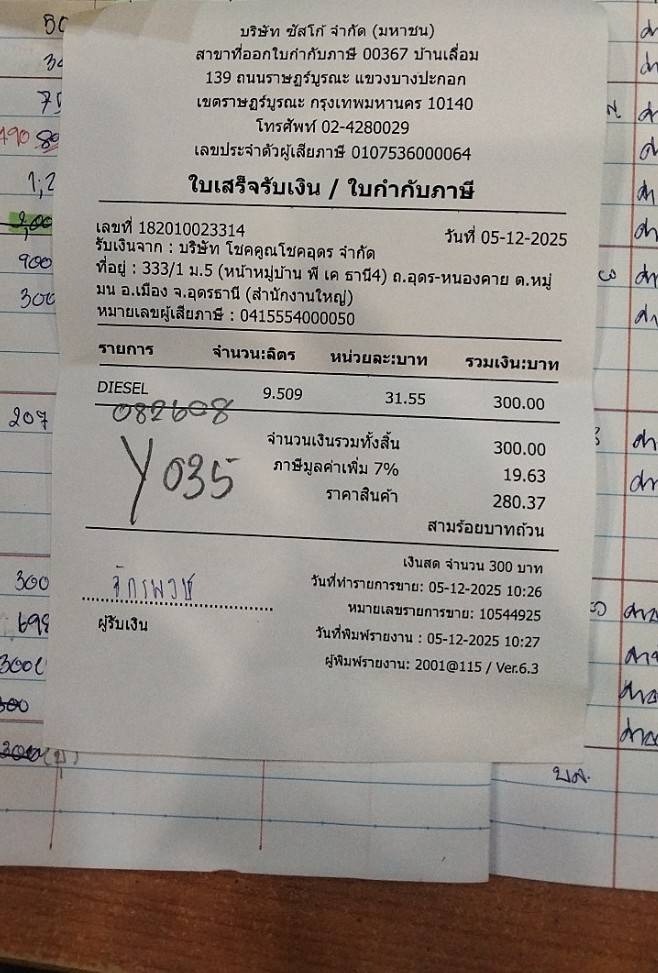 บริษัท ซัสโก้ จำกัด (มหาชน)
สาขาที่ออกใบกำกับภาษี 00367 บ้านเลื่อม
139 ถนนราษฎร์บูรณะ แขวงบางปะกอก
เขตราษฎร์บูรณะ กรุงเทพมหานคร 10140
โทรศัพท์ 02-4280029
เลขประจำตัวผู้เสียภาษี 0107536000064
ใบเสร็จรับเงิน / ใบกำกับภาษี
เลขที่ 182010023314 วันที่ 05-12-2025
รับเงินจาก : บริษัท โชคคูณโชคอุดร จำกัด
ที่อยู่ : 333/1 ม.5 (หน้าหมู่บ้าน พี เค ธานี4) ถ.อุดร-หนองคาย ต.หมู่
มน อ.เมือง จ.อุดรธานี (สำนักงานใหญ่)
หมายเลขผู้เสียภาษี : 0415554000050
รายการ จำนวน:ลิตร หน่วยละ:บาท รวมเงิน:บาท
DIESEL 9.509 31.55 300.00
082608
จำนวนเงินรวมทั้งสิ้น 300.00
Y035
ภาษีมูลค่าเพิ่ม 7% 19.63
ราคาสินค้า 280.37
สามร้อยบาทถ้วน
เงินสด จำนวน 300 บาท
วันที่ทำรายการขาย: 05-12-2025 10:26
หมายเลขรายการขาย: 10544925
ผู้รับเงิน
วันที่พิมพ์รายงาน : 05-12-2025 10:27
ผู้พิมพ์รายงาน: 2001@115 / Ver.6.3
900
300
207
300